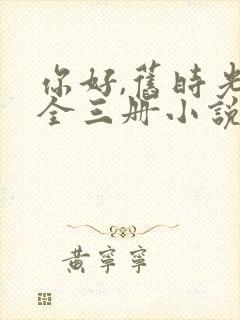 你好,舊時光
全三册小說
黃寧寧